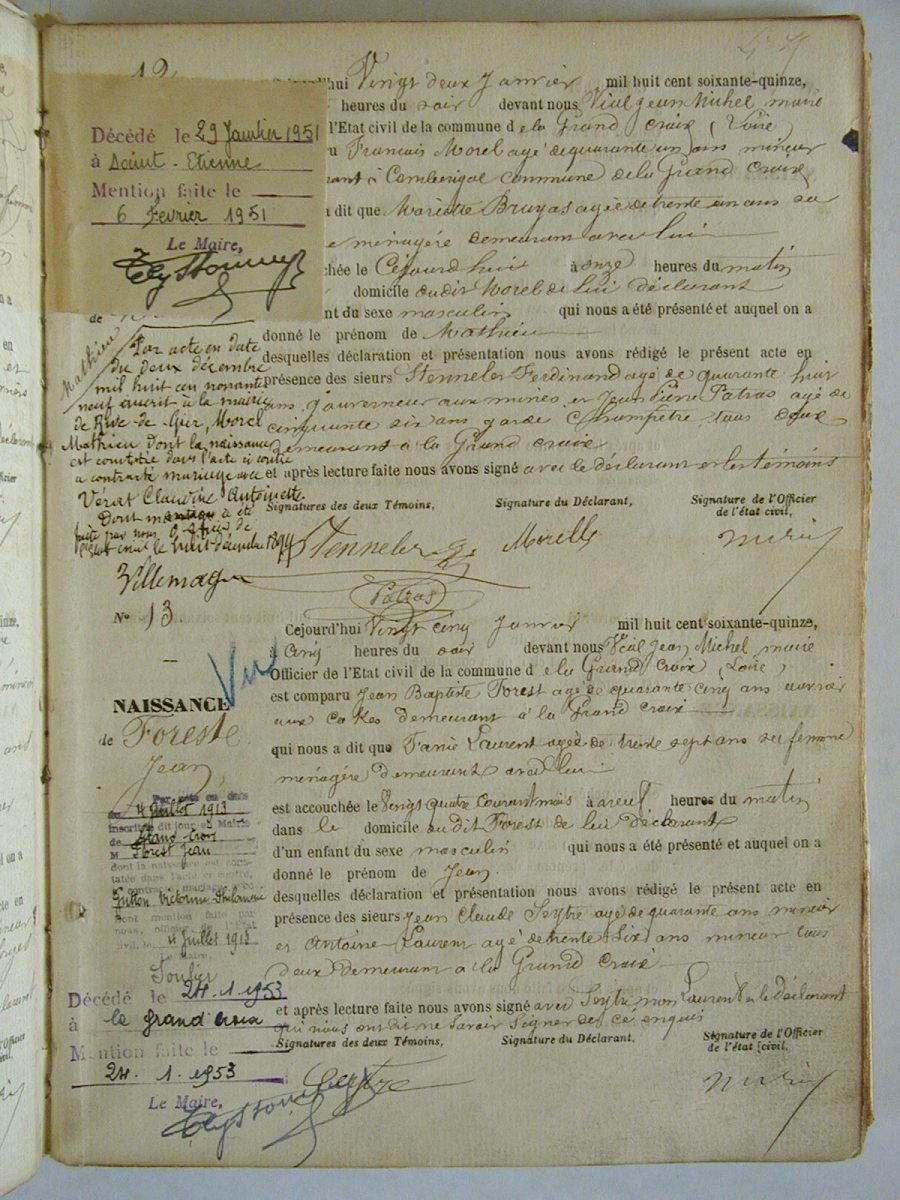 12
Décédé le 29 Janvier 1951
à Saint-Etienne
Mention faite le
6 Février 1951
Le Maire,
d'hui Vingt deux Janvier mil huit cent soixante-quinze,
heures du soir devant nous Vial Jean Michel maire
l'Etat civil de la commune d e la Grand Croix (Loire)
Francois Morel agé de quarante un ans mineur
à Combérigol commune de la Grand Croix
a dit que Mariette Bruyas agée de trente un ans sa
ménagére demeurant avec lui
chée le Cejourd'hui à onze heures du matin
domicile du dit Morel de lui déclarant
nt du sexe masculin qui nous a été présenté et auquel on a
donné le prénom de Mathieu
desquelles déclaration et présentation nous avons rédigé le présent acte en
présence des sieurs Stenneler Ferdinand agé de quarante huit
ans gouverneur aux mines et Jean Pierre Patras agé de
cinquante six ans garde champêtre tous deux
demeurant à la Grand croix
et après lecture faite nous avons signé avec le déclarant et les témoins
Signatures des deux Témoins, Signature du Déclarant, Signature de l'Officier
de l'état civil,
Stenneler Morell
Patras
de
Mathieu
Par acte en date
du deux décembre
mil huit cent nonante
neuf inscrit à la mairie
de Rive-de-Gier, Morel
Mathieu dont la naissance
est constatée dans l'acte ci contre
a contracté mariage avec
Vérat Claudine Antoinette
Dont mention a été
faite par nous officier de
l'état civil le huit décembre 1899
Villemagne
N° 13
Vu
NAISSANCE
de Foreste
Jean
Cejourd'hui Vingt cinq Janvier mil huit cent soixante-quinze,
à Cinq heures du soir devant nous Vial Jean Michel maire
Officier de l'Etat civil de la commune d e la Grand Croix (Loire)
est comparu Jean Baptiste Forest agé de quarante cinq ans ouvrier
aux cokes demeurant à la Grand croix
qui nous a dit que Fanie Laurent agée de trente sept ans sa femme
ménagére demeurant avec lui
est accouchée le Vingt quatre courant mois à neuf heures du matin
dans le domicile du dit Forest de lui déclarant
d'un enfant du sexe masculin qui nous a été présenté et auquel on a
donné le prénom de Jean
desquelles déclaration et présentation nous avons rédigé le présent acte en
présence des sieurs Jean Claude Seytre agé de quarante ans mineur
et Antoine Laurent agé de trente six ans mineur tous
deux demeurant a la Grand Croix
et après lecture faite nous avons signé avec Seytre non Laurent et le déclarant
qui nous ont dit ne savoir signer de ce enquis
Signatures des deux Témoins, Signature du Déclarant, Signature de l'Officier
de l'état civil,
Seytre
Par acte en date
du 4 Juillet 1913
inscrit dit jour à Mairie
de Grand Croix
M Forest Jean
dont la naissance est cons-
tatée dans l'acte ci contre,
a contracté mariage avec
Guitton Victorine Philomène
Dont mention faite par
nous, officier de l'Etat
civil, le 4 Juillet 1913
Le Maire,
Soulier
Décédé le 24.1.1953
à la grand croix
Mention faite le
24.1.1953
Le Maire,